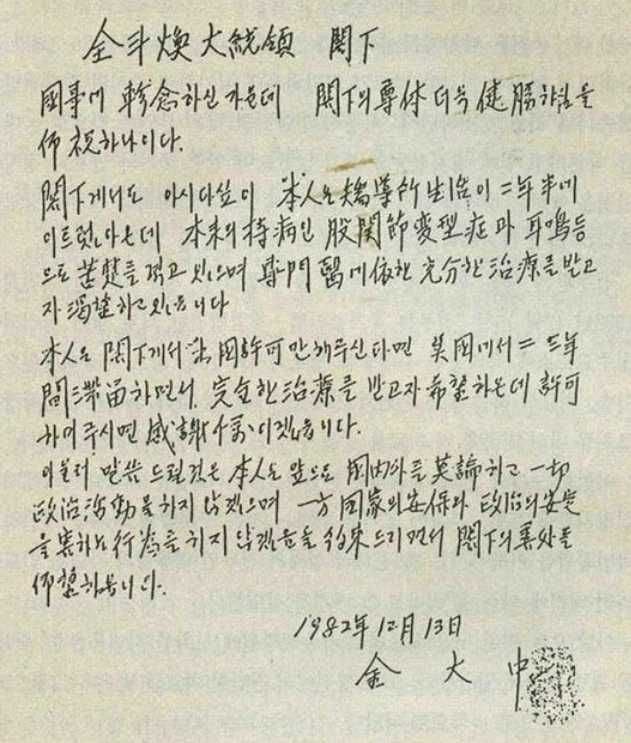 全斗煥 大統領 閣下
國事에 軫念하신 가운데 閣下의 尊体 더욱 健勝하심을
仰祝하나이다.
閣下께서도 아시다싶이 本人은 矯導所生活이 二年半에
이르렀아온데 本來의 持病인 股關節変型症과 耳鳴等
으로 苦楚를 격고 있으며 專門醫에 依한 充分한 治療를 받고
자 渴望하고 있읍니다
本人은 閣下께서 出國許可만 해주신다면 美國에서 二 三年
間 滯留하면서 完全한 治療를 받고자 希望하온데 許可
하여 주시면 感謝千萬이겠읍니다.
아울러 말씀 드릴것은 本人은 앞으로 國內外를 莫論하고 一切
政治活動을 하지 않겠으며 一方 國家의 安保와 政治의 安定
을 害하는 行為를 하지 않겠음을 約束드리면서 閣下의 善処를
仰望하옵니다.
1982年 12月 13日
金 大 中